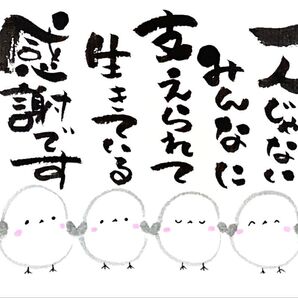 一人じゃない
みんなに
支えられて
生きている
感謝です